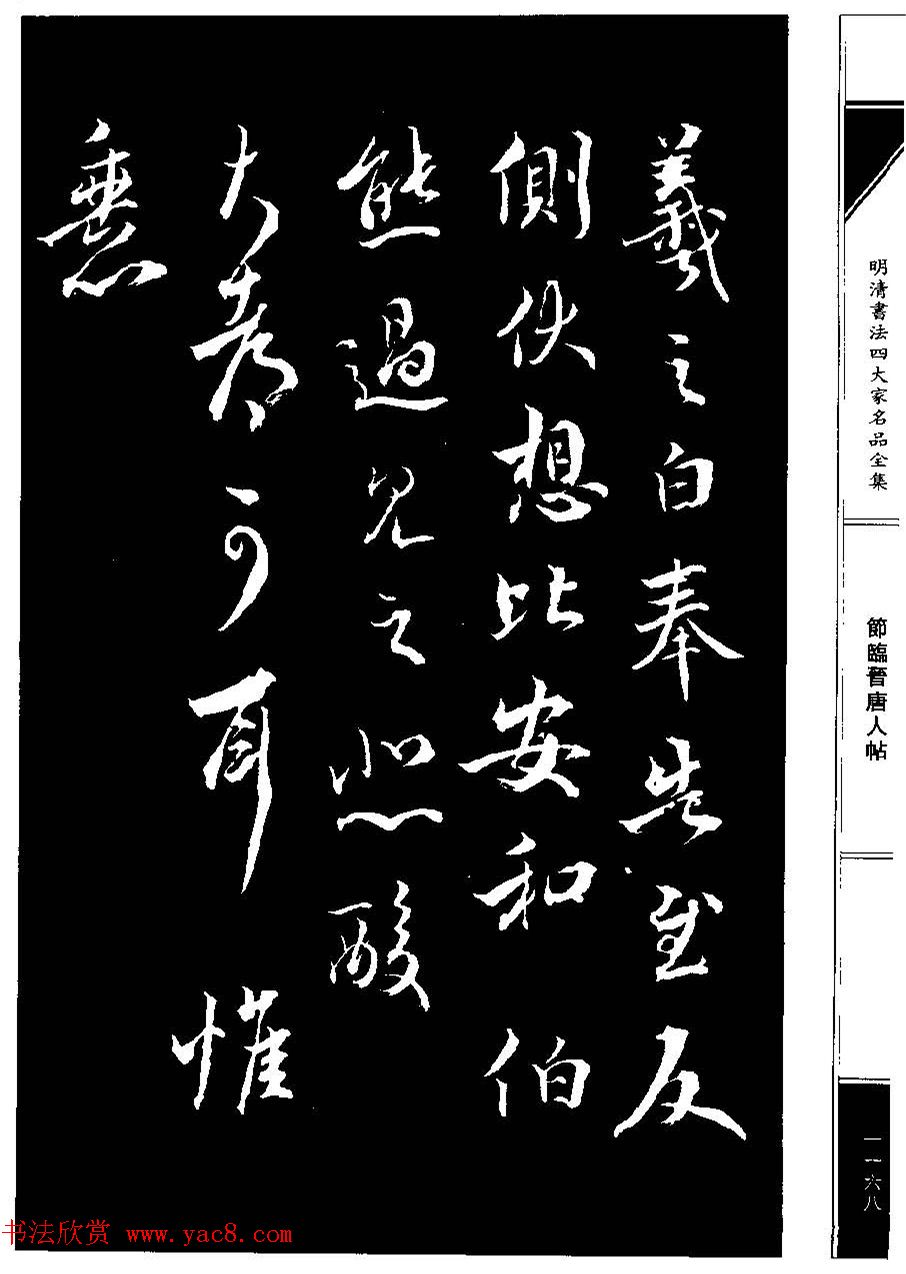 羲之白奉告至反
側伏想比安和伯
熊過見之悲酸
大都可耳惟
明清書法四大家名品全集
節臨晉唐人帖
一一六八
书法欣赏 www.yac8.com